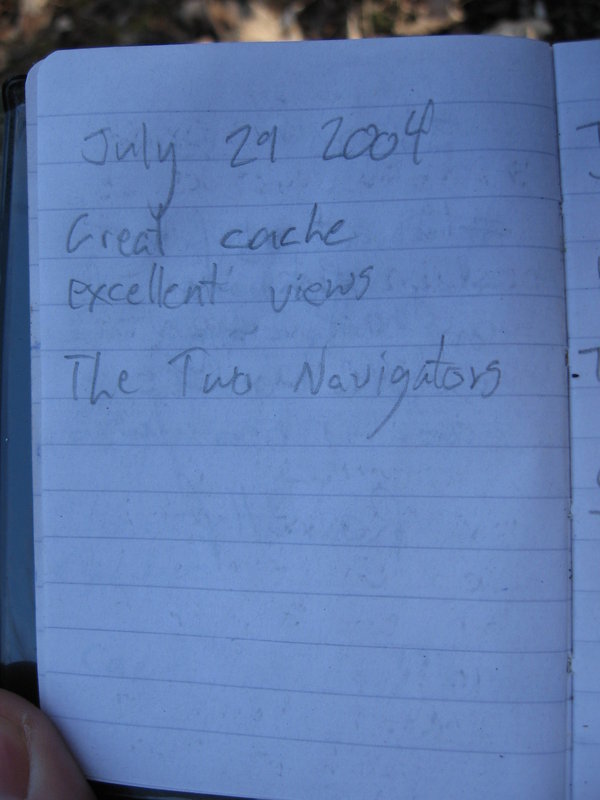 July 29 2004
Great cache
excellent views
The Two Navigators